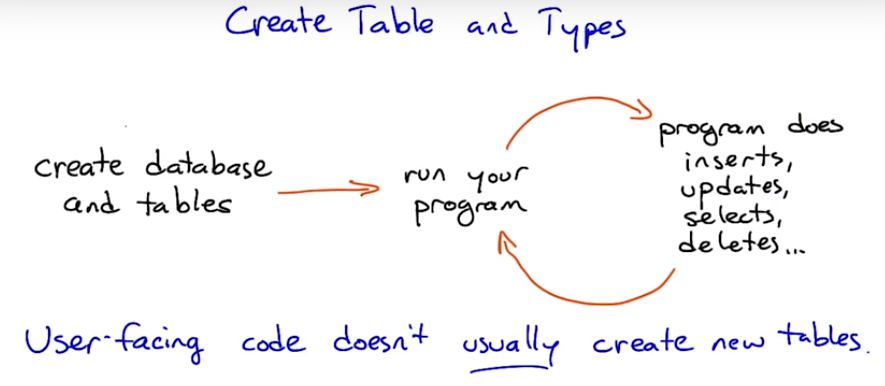 Create Table and Types
create database
and tables
run your
program
program does
inserts,
updates,
selects,
deletes...
User-facing code doesn't usually create new tables.